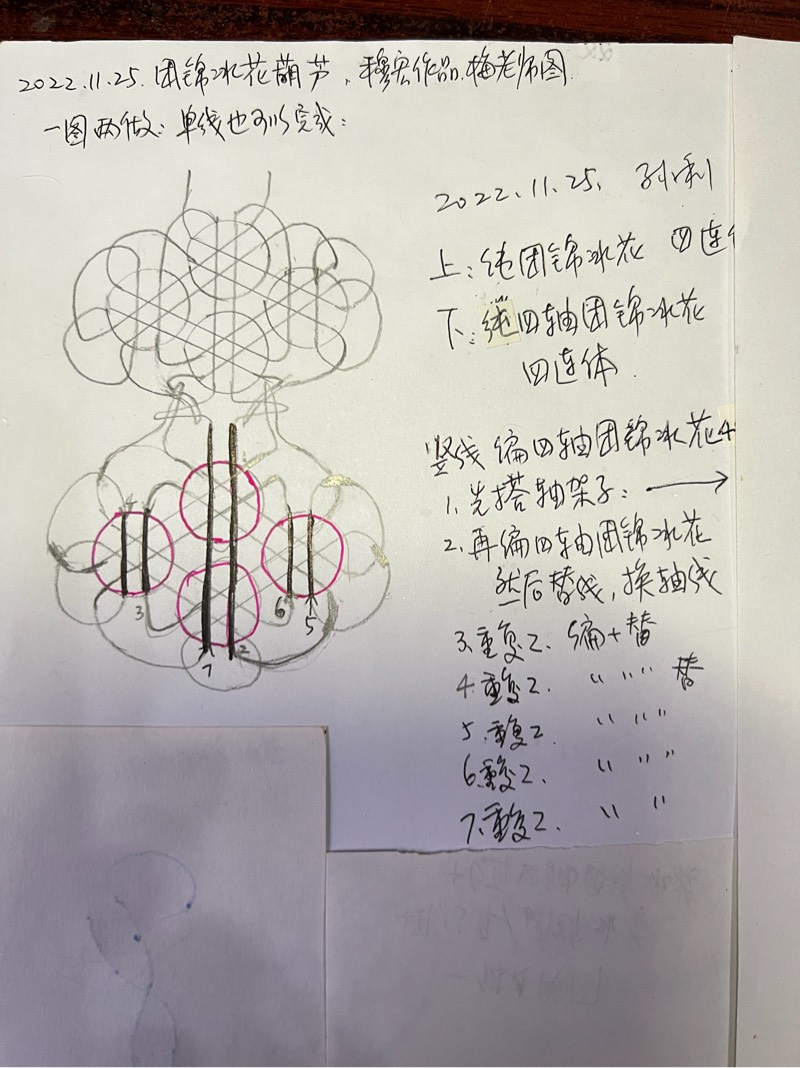 2022.11.25.团锦冰花葫芦,穆宏作品.梅老师图.
一图两做:单线也可以完成:
2022.11.25. 孙利
上:纯团锦冰花 四连
下:纯四轴团锦冰花
四连体.
竖线编四轴团锦冰花4
1.先搭轴架子: →
2.再编四轴团锦冰花
然后替线,换轴线
3.重复2. 编+替
4.重复2. 〃 〃 替
5.重复2 〃 〃
6.重复2. 〃 〃
7.重复2. 〃 〃
3
6
5
7
2